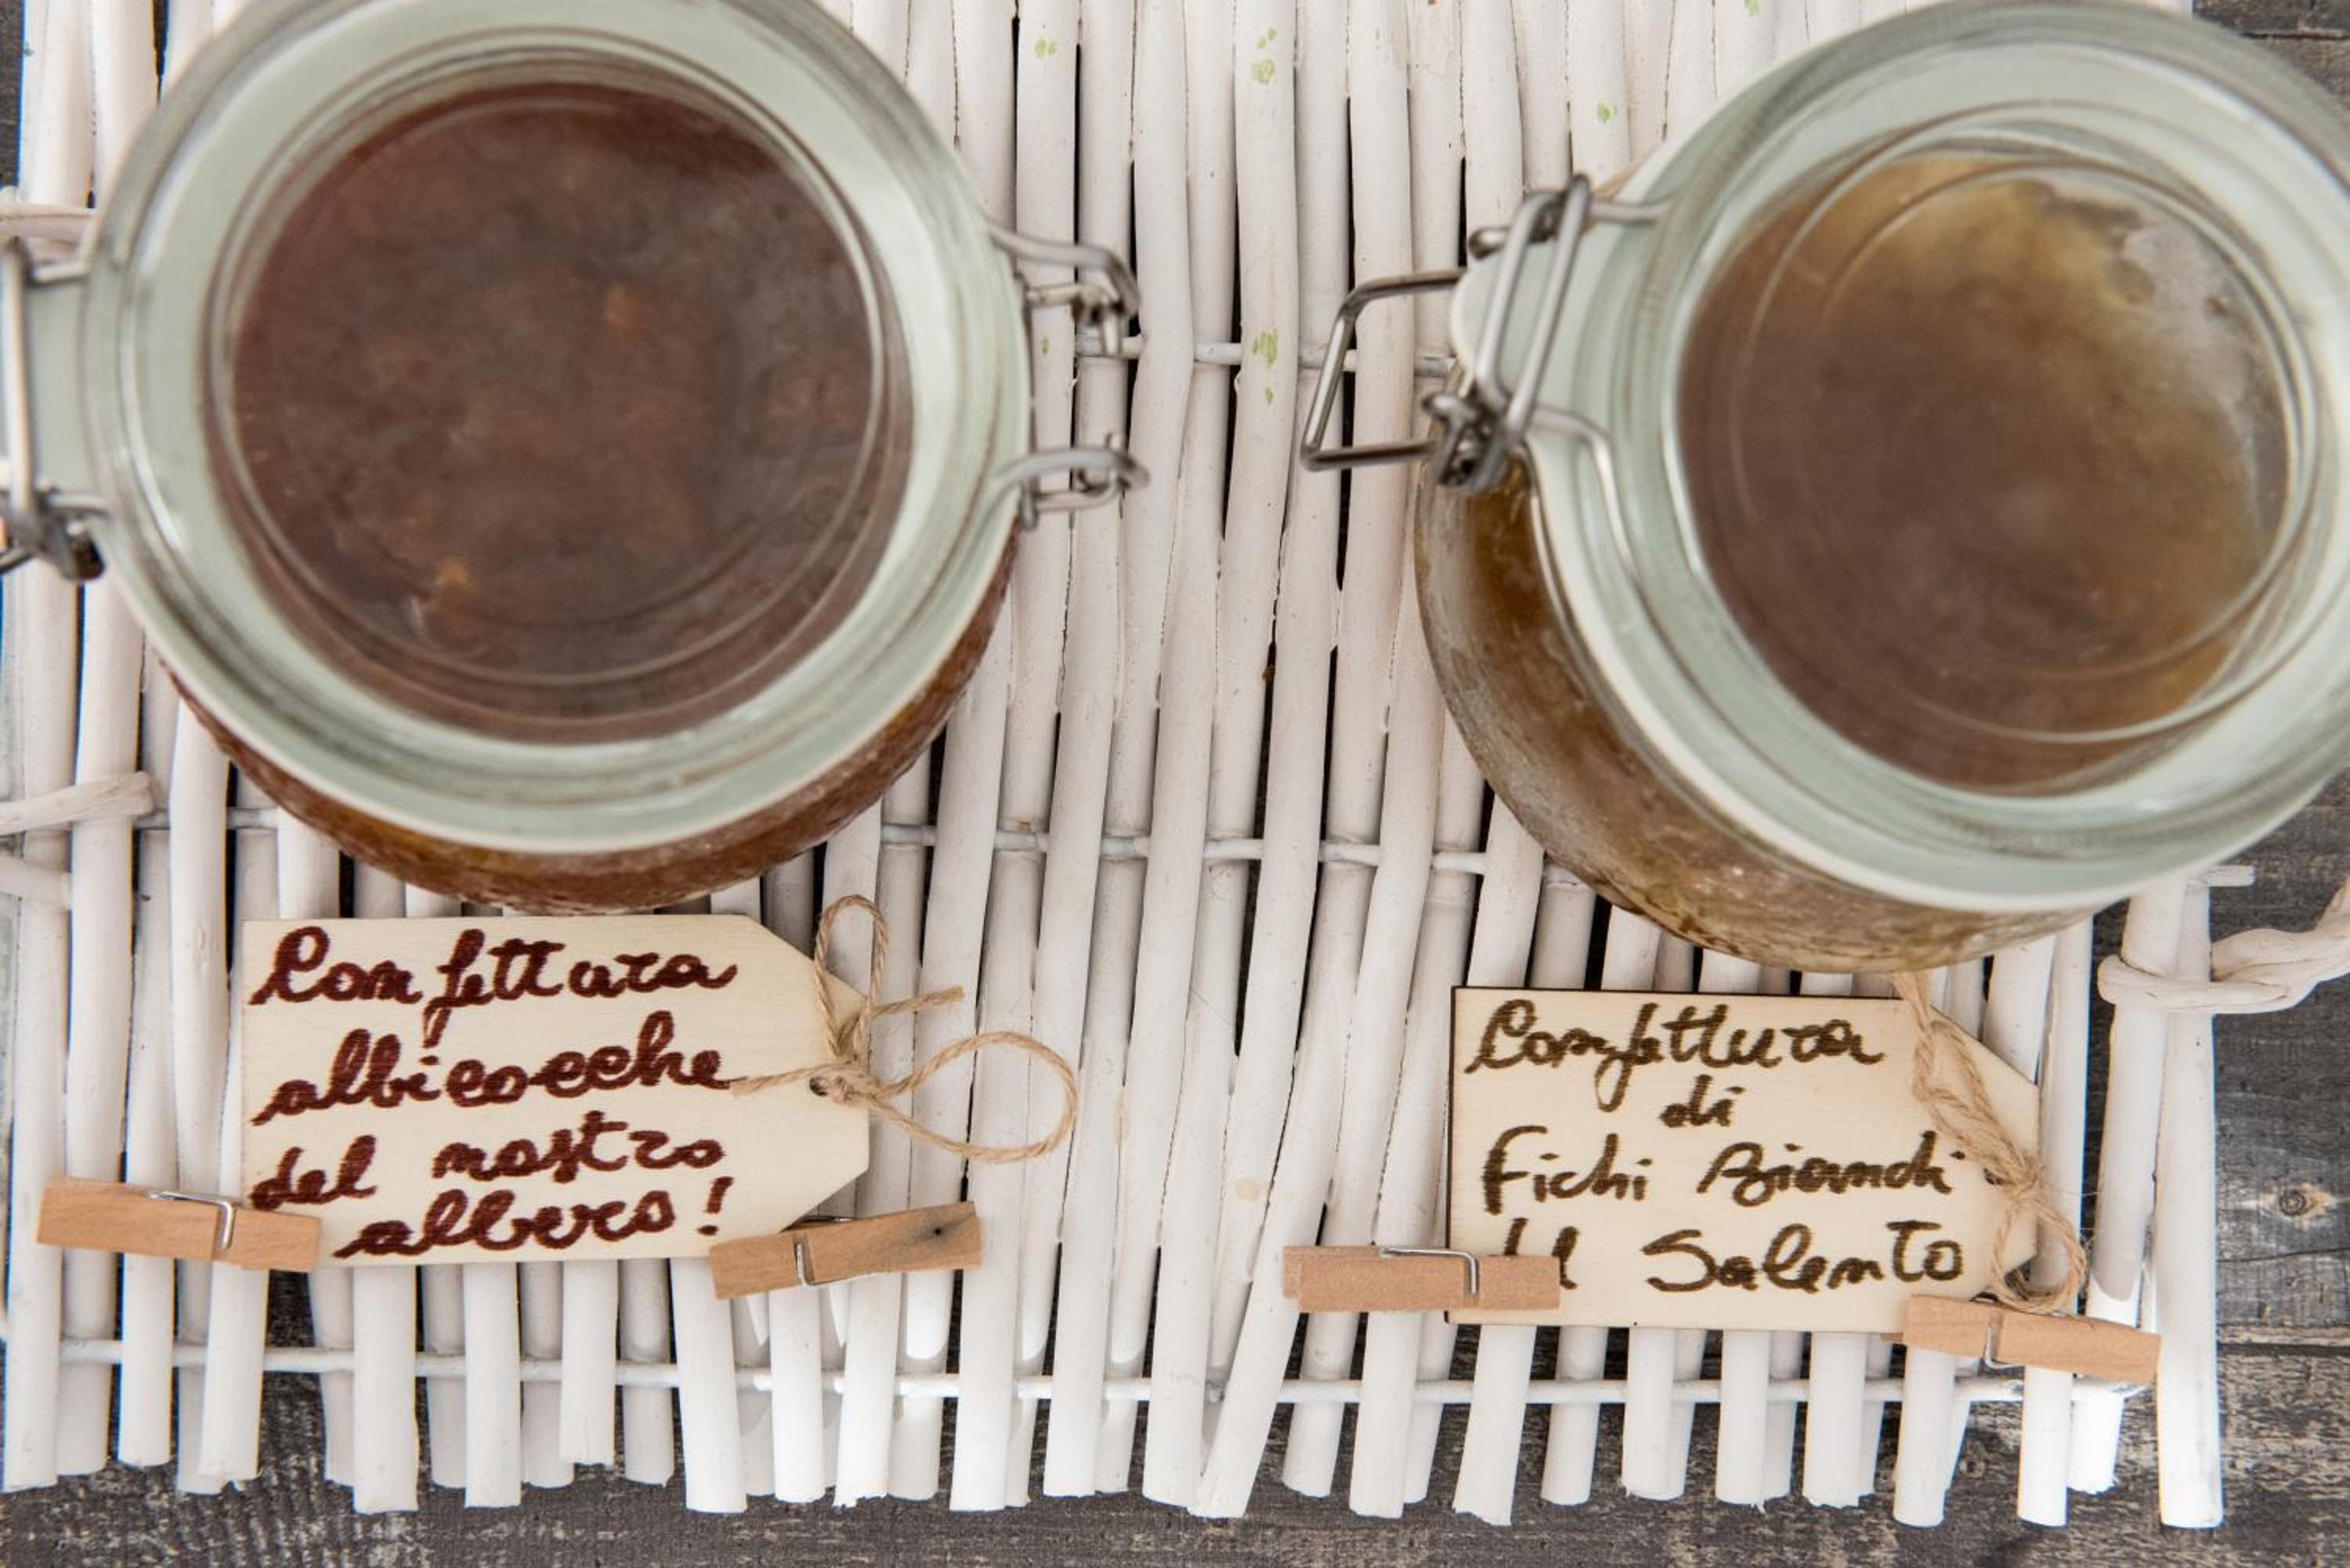 Confettura
albicocche
del nostro
albero!
Confettura
di
Fichi Bianchi
del Salento